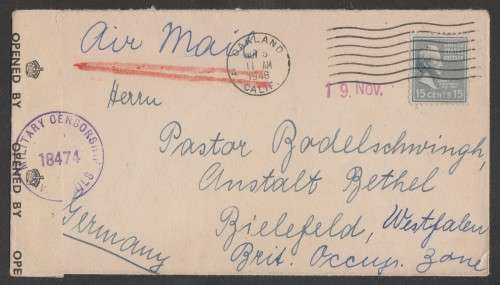 OPENED BY
OPENED BY
OPE
MILITARY CENSORSHIP
18474
Air Mail
OAKLAND
11 AM
1948
CALIF.
19. NOV.
15 CENTS 15
Herrn
Pastor Bodelschwingh,
Anstalt Bethel
Bielefeld, Westfalen
Brit. Occup. Zone
Germany